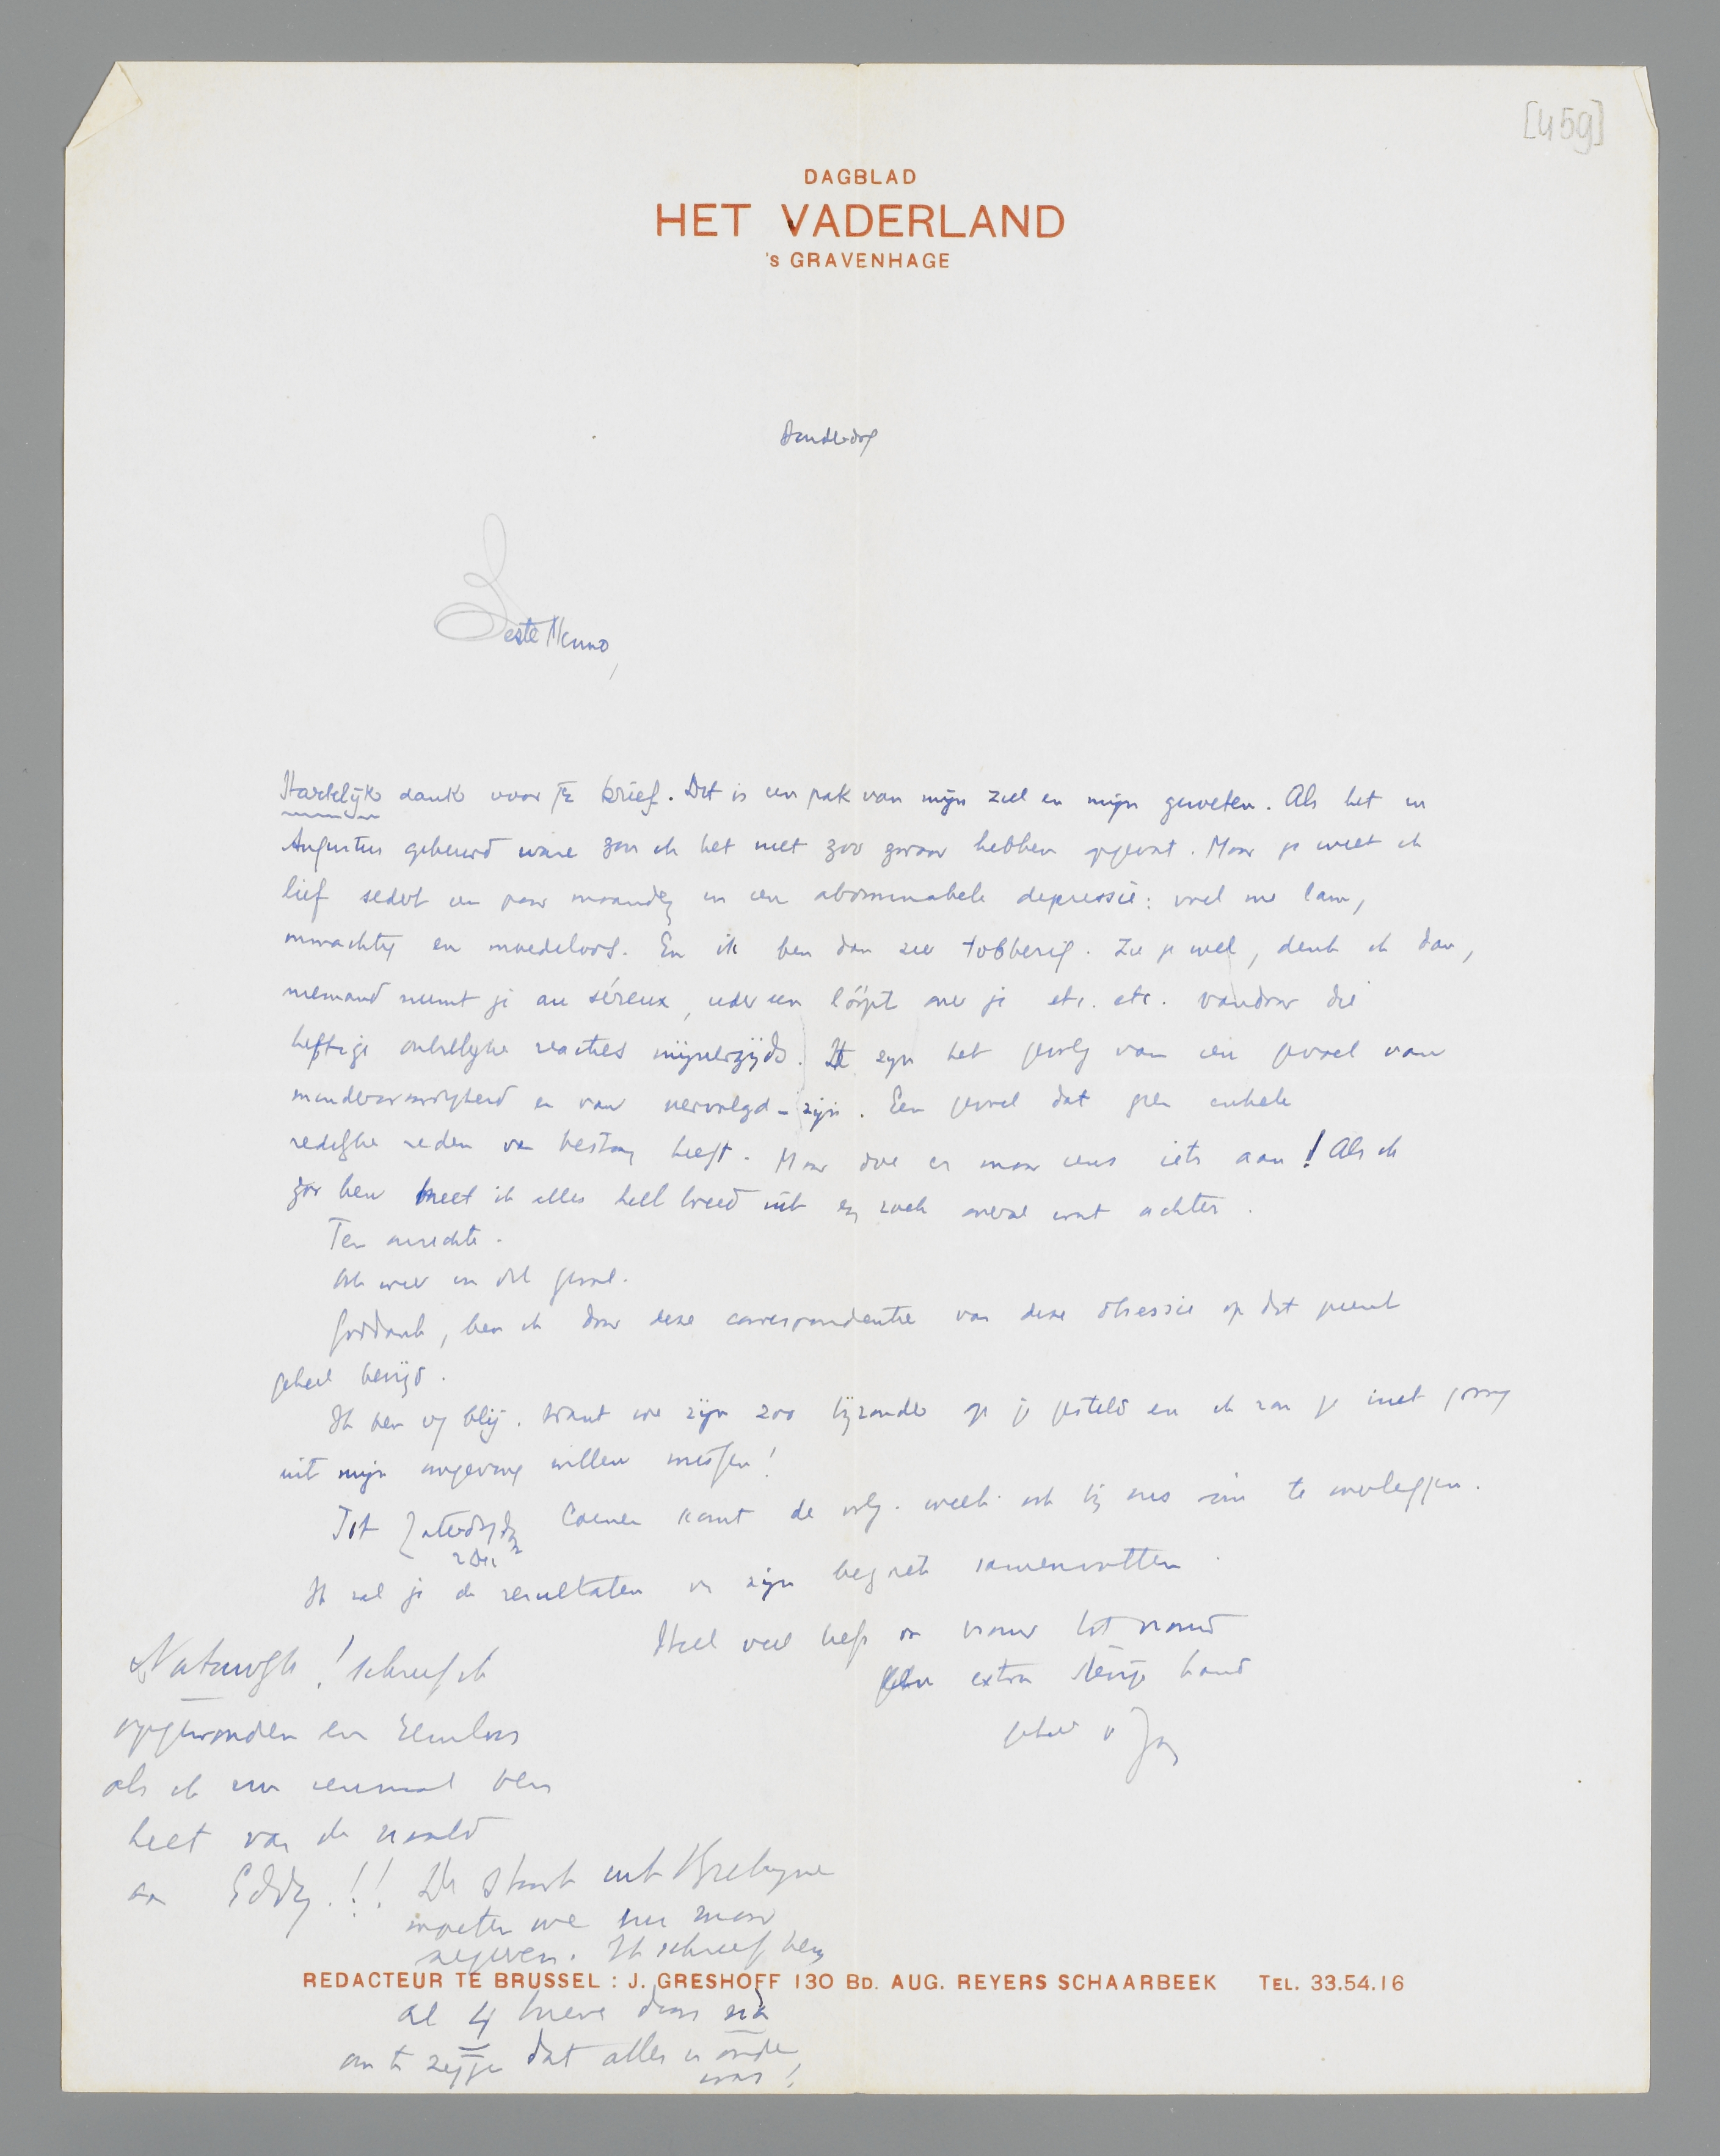 [459]
DAGBLAD
HET VADERLAND
's GRAVENHAGE
Donderdag
Beste Menno,
Hartelijk dank voor je brief. Dat is een pak van mijn ziel en mijn geweten. Als het in
Augustus gebeurd ware zou ik het niet zoo zwaar hebben opgevat. Maar je weet ik
lief sedert een paar maanden in een abominabele depressie: voel me lam,
onmachtig en moedeloos. En ik ben dan zeer tobberig. Zie je wel, denk ik dan,
niemand neemt je au sérieux, iedereen loopt over je etc. etc. Vandaar die
heftige onbillijke reacties mijnerzijds. Ze zijn het gevolg van een gevoel van
minderwaardigheid en van vervolgd-zijn. Een gevoel dat geen enkele
redelijke reden van bestaan heeft. Maar doe er maar eens iets aan! Als ik
zoo ben meet ik alles heel breed uit en zoek overal wat achter.
Ten onrechte.
Ook weer in dit geval.
Goddank, ben ik door deze correspondentie van deze obsessie op dat punt
geheel bevrijd.
Ik ben erg blij. Want we zijn zoo bijzonder op je gesteld en ik zou je niet graag
uit mijn omgeving willen missen!
Tot Zaterdag
2 Dec
Coenen komt de volg. week ook bij ons om te overleggen.
Ik zal je de resultaten van zijn bezoek samenvatten.
Heel veel liefs van vrouw tot vrouw
Een extra stevige hand
geheel v Jan
Natuurlijk! schreef ik
opgewonden en zenuwloos
als ik nu eenmaal ben
heet van de naald
aan Eddy!! De staart uit Bretagne
moeten we nu maar
negeren. Ik schreef hem
REDACTEUR TE BRUSSEL : J. GRESHOFF 130 BD. AUG. REYERS SCHAARBEEK TEL. 33.54.16
al 4 brieven daarna
om te zeggen dat alles in orde
was!